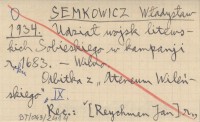 O SEMKOWICZ Władysław
1934. Udział wojsk litews-
kich Sobieskiego w kampanji
r. 1683. — Wilno
Odbitka z „Ateneum Wileń-
skiego", IX
Rec.: [Reychman Jan]